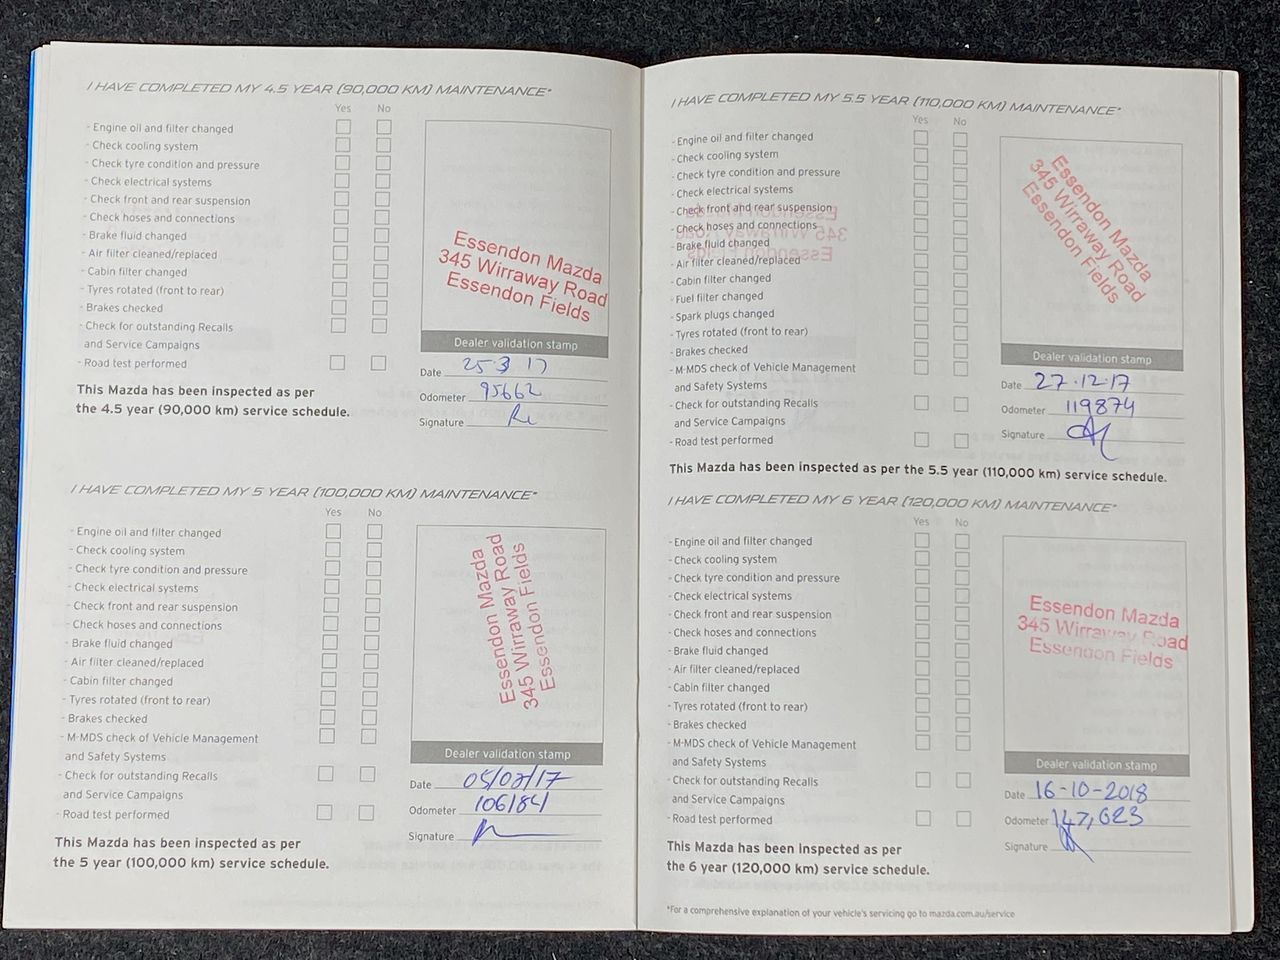 I HAVE COMPLETED MY 4.5 YEAR (90,000 KM) MAINTENANCE*
Yes No
- Engine oil and filter changed
- Check cooling system
- Check tyre condition and pressure
- Check electrical systems
- Check front and rear suspension
- Check hoses and connections
- Brake fluid changed
- Air filter cleaned/replaced
- Cabin filter changed
- Tyres rotated (front to rear)
- Brakes checked
- Check for outstanding Recalls
and Service Campaigns
- Road test performed
This Mazda has been inspected as per
the 4.5 year (90,000 km) service schedule.
Essendon Mazda
345 Wirraway Road
Essendon Fields
Dealer validation stamp
Date 25·3 17
Odometer 95662
Signature
I HAVE COMPLETED MY 5 YEAR (100,000 KM) MAINTENANCE*
Yes No
- Engine oil and filter changed
- Check cooling system
- Check tyre condition and pressure
- Check electrical systems
- Check front and rear suspension
- Check hoses and connections
- Brake fluid changed
- Air filter cleaned/replaced
- Cabin filter changed
- Tyres rotated (front to rear)
- Brakes checked
- M-MDS check of Vehicle Management
and Safety Systems
- Check for outstanding Recalls
and Service Campaigns
- Road test performed
This Mazda has been inspected as per
the 5 year (100,000 km) service schedule.
Essendon Mazda
345 Wirraway Road
Essendon Fields
Dealer validation stamp
Date
Odometer 106184
Signature
I HAVE COMPLETED MY 5.5 YEAR (110,000 KM) MAINTENANCE*
Yes No
- Engine oil and filter changed
- Check cooling system
- Check tyre condition and pressure
- Check electrical systems
- Check front and rear suspension
- Check hoses and connections
- Brake fluid changed
- Air filter cleaned/replaced
- Cabin filter changed
- Fuel filter changed
- Spark plugs changed
- Tyres rotated (front to rear)
- Brakes checked
- M-MDS check of Vehicle Management
and Safety Systems
- Check for outstanding Recalls
and Service Campaigns
- Road test performed
This Mazda has been inspected as per the 5.5 year (110,000 km) service schedule.
Essendon Mazda
345 Wirraway Road
Essendon Fields
Dealer validation stamp
Date 27·12·17
Odometer 119874
Signature
I HAVE COMPLETED MY 6 YEAR (120,000 KM) MAINTENANCE*
Yes No
- Engine oil and filter changed
- Check cooling system
- Check tyre condition and pressure
- Check electrical systems
- Check front and rear suspension
- Check hoses and connections
- Brake fluid changed
- Air filter cleaned/replaced
- Cabin filter changed
- Tyres rotated (front to rear)
- Brakes checked
- M-MDS check of Vehicle Management
and Safety Systems
- Check for outstanding Recalls
and Service Campaigns
- Road test performed
This Mazda has been inspected as per
the 6 year (120,000 km) service schedule.
Essendon Mazda
345 Wirraway Road
Essendon Fields
Dealer validation stamp
Date 16-10-2018
Odometer 147,623
Signature
*For a comprehensive explanation of your vehicle's servicing go to mazda.com.au/service